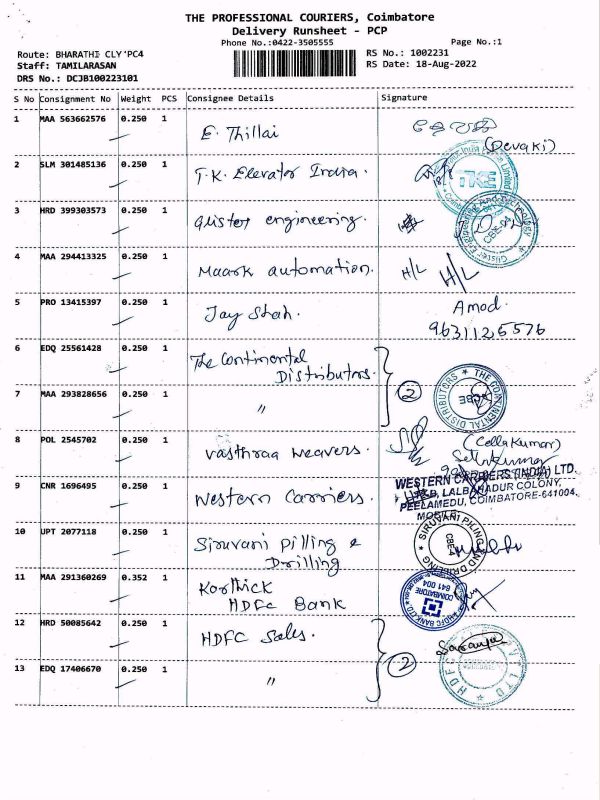 THE PROFESSIONAL COURIERS, Coimbatore
Delivery Runsheet - PCP
Phone No.:0422-3505555
Page No.:1
Route: BHARATHI CLY'PC4
Staff: TAMILARASAN
DRS No.: DCJB100223101
RS No.: 1002231
RS Date: 18-Aug-2022
S No Consignment No Weight PCS Consignee Details Signature
1 MAA 563662576 0.250 1 E. Thillai
(Devaki)
2 SLM 301485136 0.250 1 T.K. Elevator India.
TKE
3 HRD 399303573 0.250 1 Glister engineering.
4 MAA 294413325 0.250 1 Maark automation. H/L H/L
5 PRO 13415397 0.250 1 Jay Shah. Amod.
9631125576
6 EDQ 25561428 0.250 1 The Continental
Distributors. 2
THE CONTINENTAL DISTRIBUTORS
CBE
7 MAA 293828656 0.250 1 "
8 POL 2545702 0.250 1 Vasthraa weavers. (Cellakumar)
9 CNR 1696495 0.250 1 Western Carriers.
WESTERN CARRIERS (INDIA) LTD.
LALBAHADUR COLONY,
PEELAMEDU, COIMBATORE-641004.
MOBILE
10 UPT 2077118 0.250 1 Siruvani pilling &
Drilling
SIRUVANI PILING AND DRILLING
CBE-4
11 MAA 291360269 0.352 1 Karthick
HDFC Bank
COIMBATORE
641 004
12 HRD 50085642 0.250 1 HDFC Sales. 2
Saranya
13 EDQ 17406670 0.250 1 "